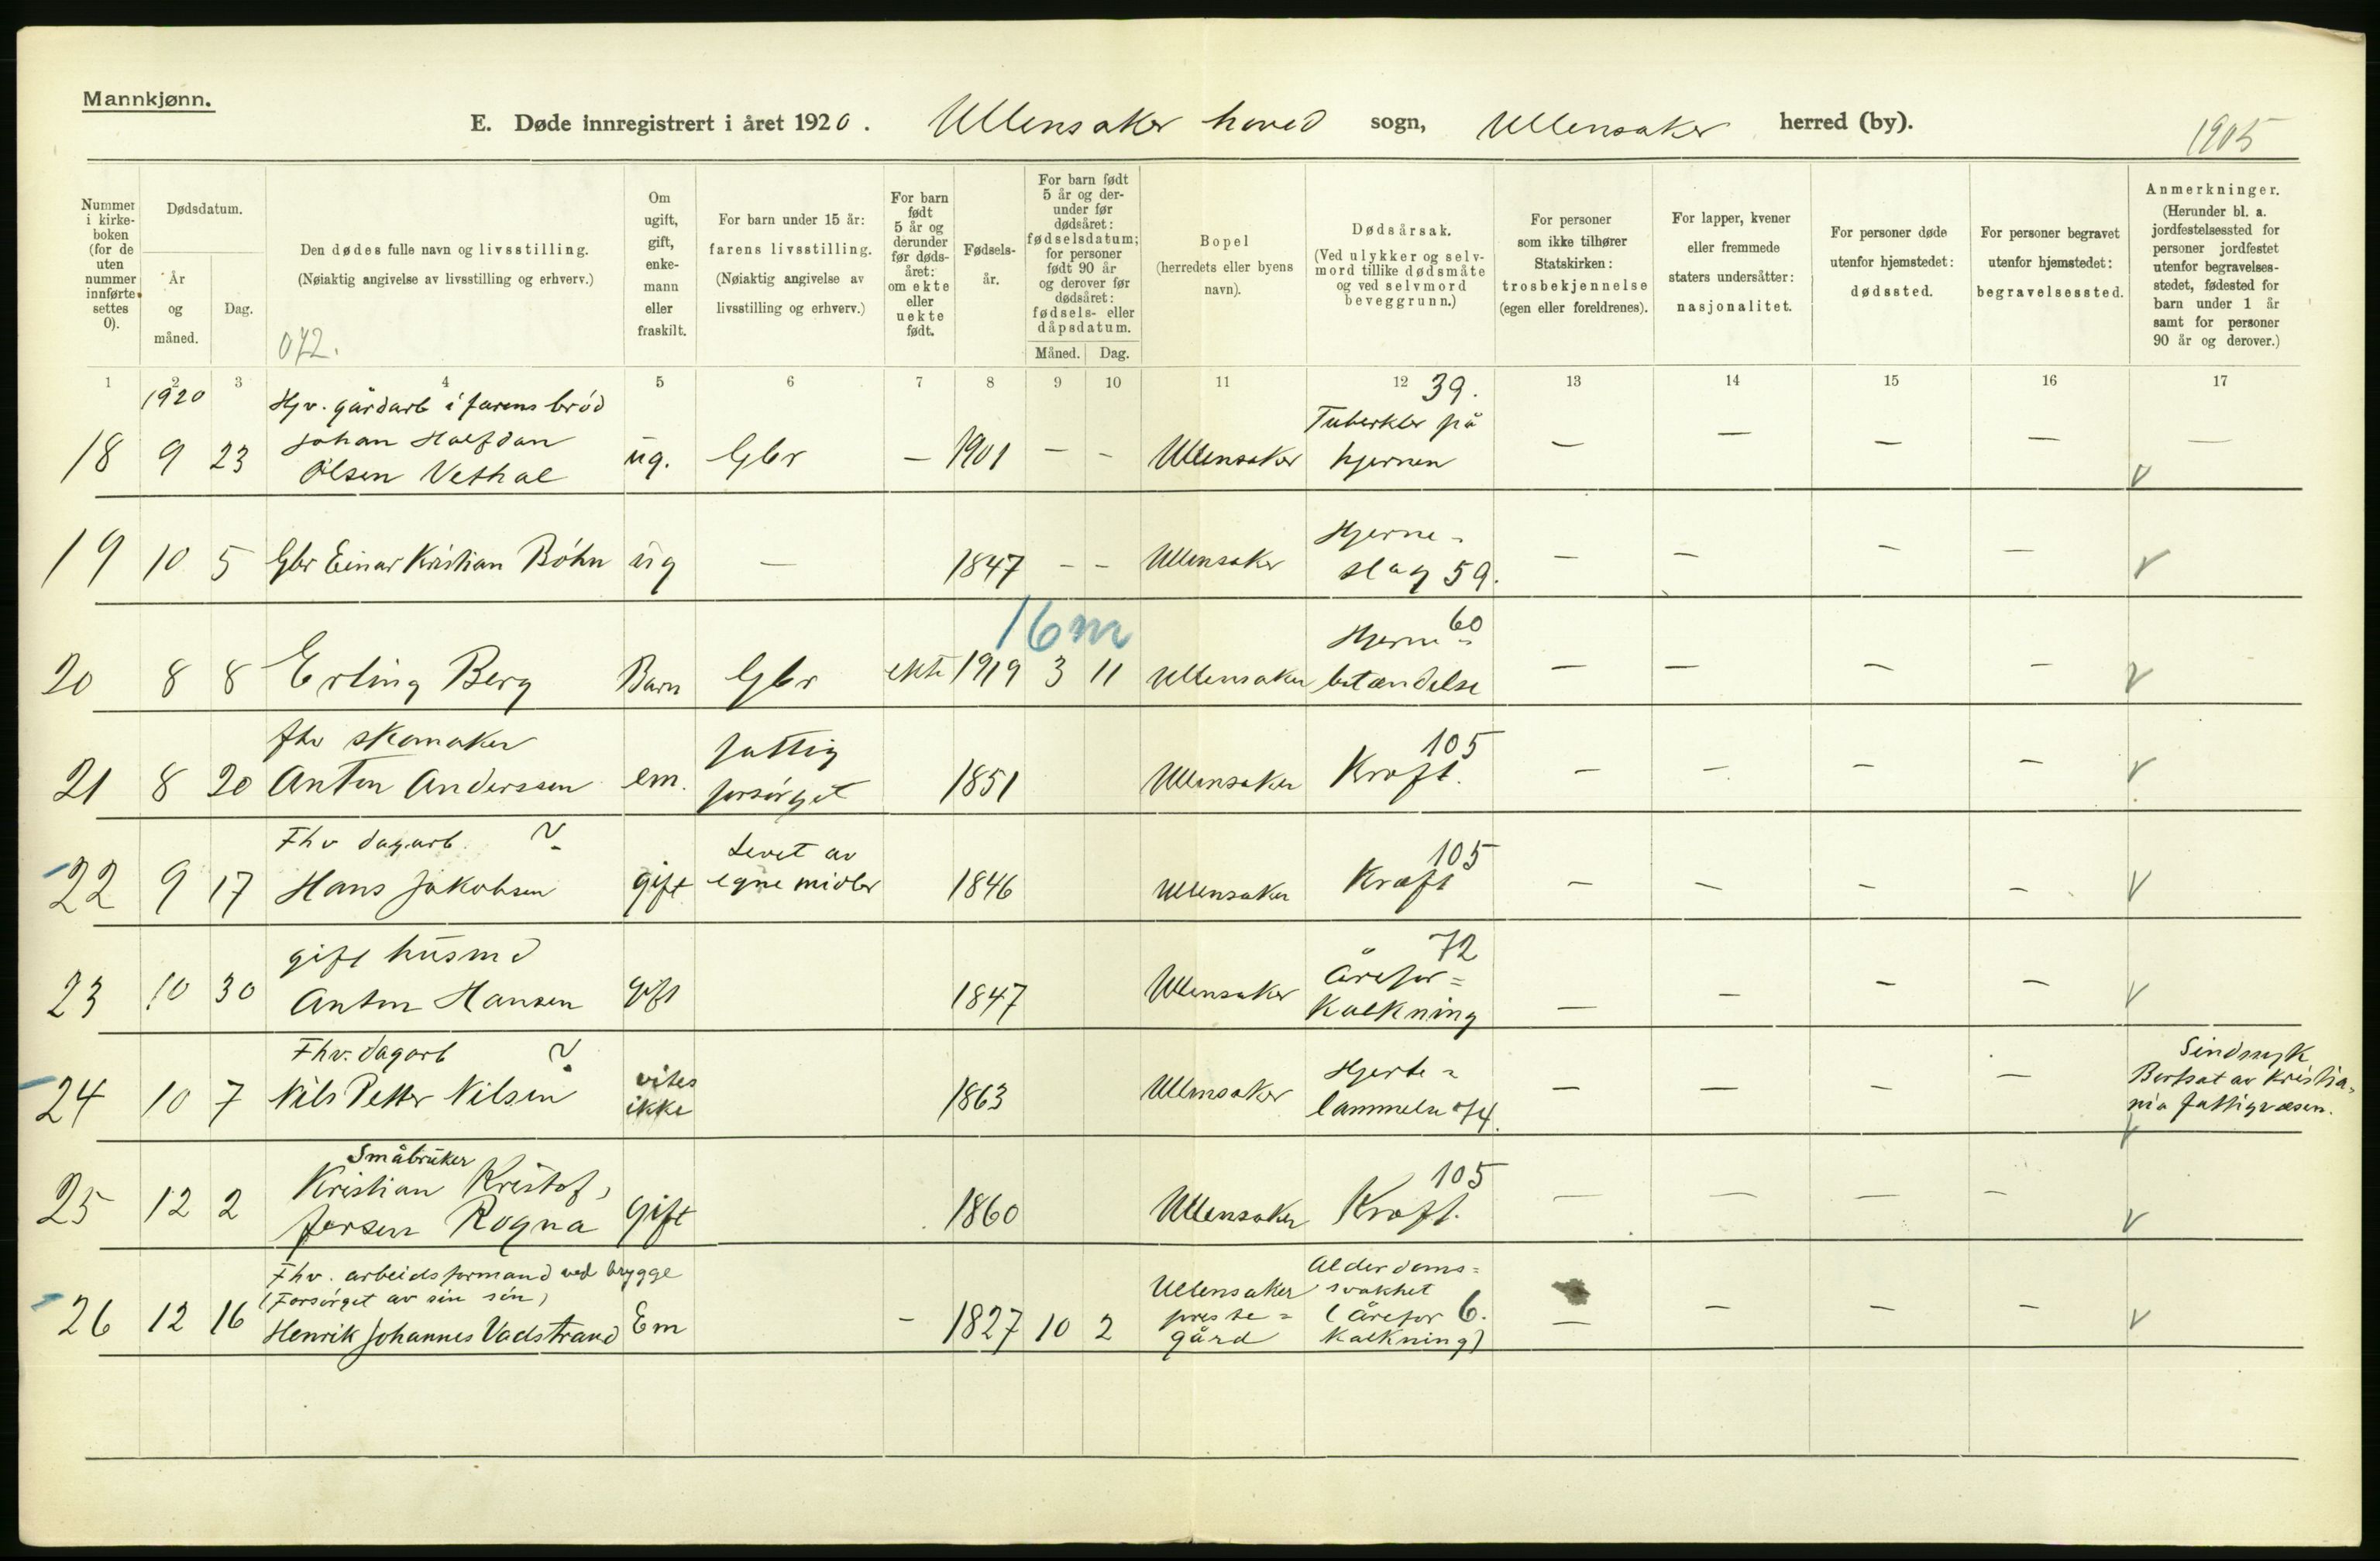 Mannkjønn.
E. Døde innregistrert i året 1920. Ullensaker hoved sogn, Ullensaker herred (by).
1905
Nummer i kirke-boken (for de uten nummer innførte settes 0).
Dødsdatum.
År og måned.
Dag.
Den dødes fulle navn og livsstilling.
(Nøiaktig angivelse av livsstilling og erhverv.)
072.
Om ugift, gift, enke-mann eller fraskilt.
For barn under 15 år: farens livsstilling.
(Nøiaktig angivelse av livsstilling og erhverv.)
For barn født 5 år og derunder før døds-året: om ekte eller uekte født.
Fødsels-år.
For barn født 5 år og der-under før dødsåret: fødselsdatum; for personer født 90 år og derover før dødsåret: fødsels- eller dåpsdatum.
Måned. Dag.
Bopel (herredets eller byens navn).
Dødsårsak.
(Ved ulykker og selv-mord tillike dødsmåte og ved selvmord beveggrunn.)
For personer som ikke tilhører Statskirken: trosbekjennelse (egen eller foreldrenes).
For lapper, kvener eller fremmede staters undersåtter: nasjonalitet.
For personer døde utenfor hjemstedet: dødssted.
For personer begravet utenfor hjemstedet: begravelsessted.
Anmerkninger.
(Herunder bl. a. jordfestelsessted for personer jordfestet utenfor begravelses-stedet, fødested for barn under 1 år samt for personer 90 år og derover.)
1 2 3 4 5 6 7 8 9 10 11 12 13 14 15 16 17
1920 Hjv. gårdarb i farens brød 39.
18 9 23 Johan Halfdan Olsen Vethal ug. Gbr – 1901 – – Ullensaker Tuberkler på hjernen – – – – – V
19 10 5 Gbr Einar Kristian Bøhn ug – 1847 – – Ullensaker Hjerne-slag 59. – – – – V
16 m
20 8 8 Erling Berg Barn Gbr ekte 1919 3 11 Ullensaker Hjerne- 60 betændelse – – – – V
21 8 20 fhv skomaker Anton Anderssen em. fattig forsørget 1851 Ullensaker Kræft. 105 – – – – V
22 9 17 Fhv dagarb. Hans Jakobsen gift Levet av egne midler 1846 Ullensaker Kræft 105 – – – – V
23 10 30 gift husmd Anton Hansen gift 1847 Ullensaker 72 Årefor=kalkning – – – – V
24 10 7 Fhv. dagarb Nils Petter Nilsen vites ikke 1863 Ullensaker Hjerte=lammelse 74. – – – – Sindssyk Bortsat av Kristia=nia fattigvæsen. V
25 12 2 Småbruker Kristian Kristof, fersen Rogna Gift 1860 Ullensaker Kræft. 105 – – – – V
26 12 16 Fhv. arbeidsformand ved brygge (Forsørget av sin søn) Henrik Johannes Vadstrand Em – 1827 10 2 Ullensaker preste=gård Alderdoms=svakhet (Årefor 6. kalkning) – – – – V